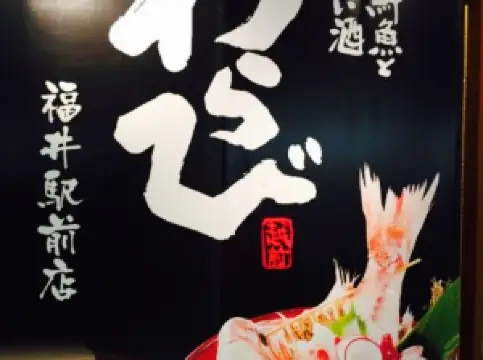 魚と
い酒
わらび
越前
福井駅前店